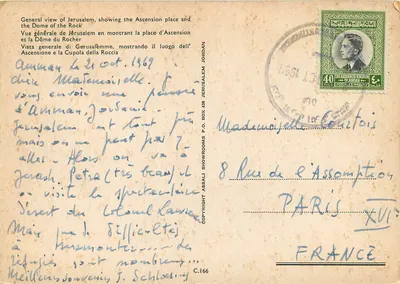 General view of Jerusalem, showing the Ascension place and
the Dome of the Rock
Vue générale de Jérusalem en montrant la place d'Ascension
et la Dôme du Rocher
Vista generale di Gerusalemme, mostrando il luogo dell'
Ascensione e la Cupola della Roccia
Amman le 21 oct. 1969
Chère Mademoiselle. Je
vous envoie une pensée
d'Amman, Jordanie.
Jérusalem est tout près
mais on ne peut pas y
aller. Alors on va à
Jerash, Petra (très beau) et
on visite le spectaculaire
désert du Colonel Lawrence
Mais que de difficultés
à surmonter... Les
réfugiés sont nombreux...
Meilleurs souvenirs J.
C.166
COPYRIGHT ASSALI SHOWROOMS P.O. BOX JERUSALEM JORDAN
40
Mademoiselle Courtois
8 Rue de l'Assomption
PARIS
XVIe
FRANCE